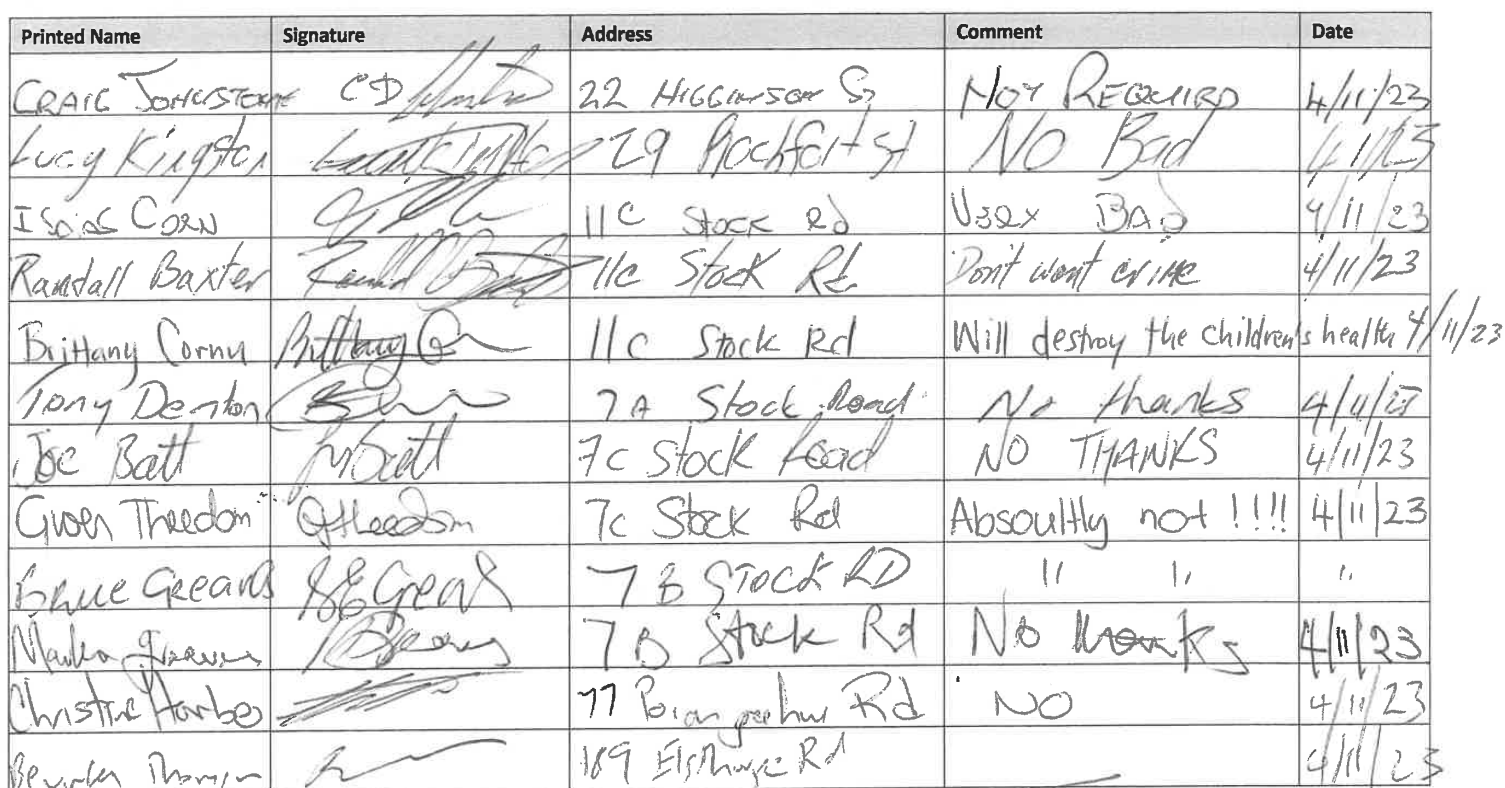 Printed Name Signature Address Comment Date
CRAIG JOHNSTONE CD 22 HIGGINSON St NOT REQUIRED 4/11/23
Lucy Kingston 29 Rochfort St NO Bad 4/11/23
ISaias CORN 11C Stock Rd VERY BAD 4/11/23
Randall Baxter 11c Stock Rd. Don't want crime 4/11/23
Brittany Corny Brittany 11C Stock Rd Will destroy the children's health 4/11/23
Tony Denton 7A Stock Road No thanks 4/11/23
Joe Batt JM Batt 7c Stock Road NO THANKS 4/11/23
Gwen Theedom GTheedom 7c Stock Rd Absoultly not !!!! 4/11/23
Bruce Greaves 7B STOCK RD " " "
Greaves 7B Stock Rd No thanks 4/11/23
Christine 77 Rd NO 4/11/23
189 Rd 4/11/23